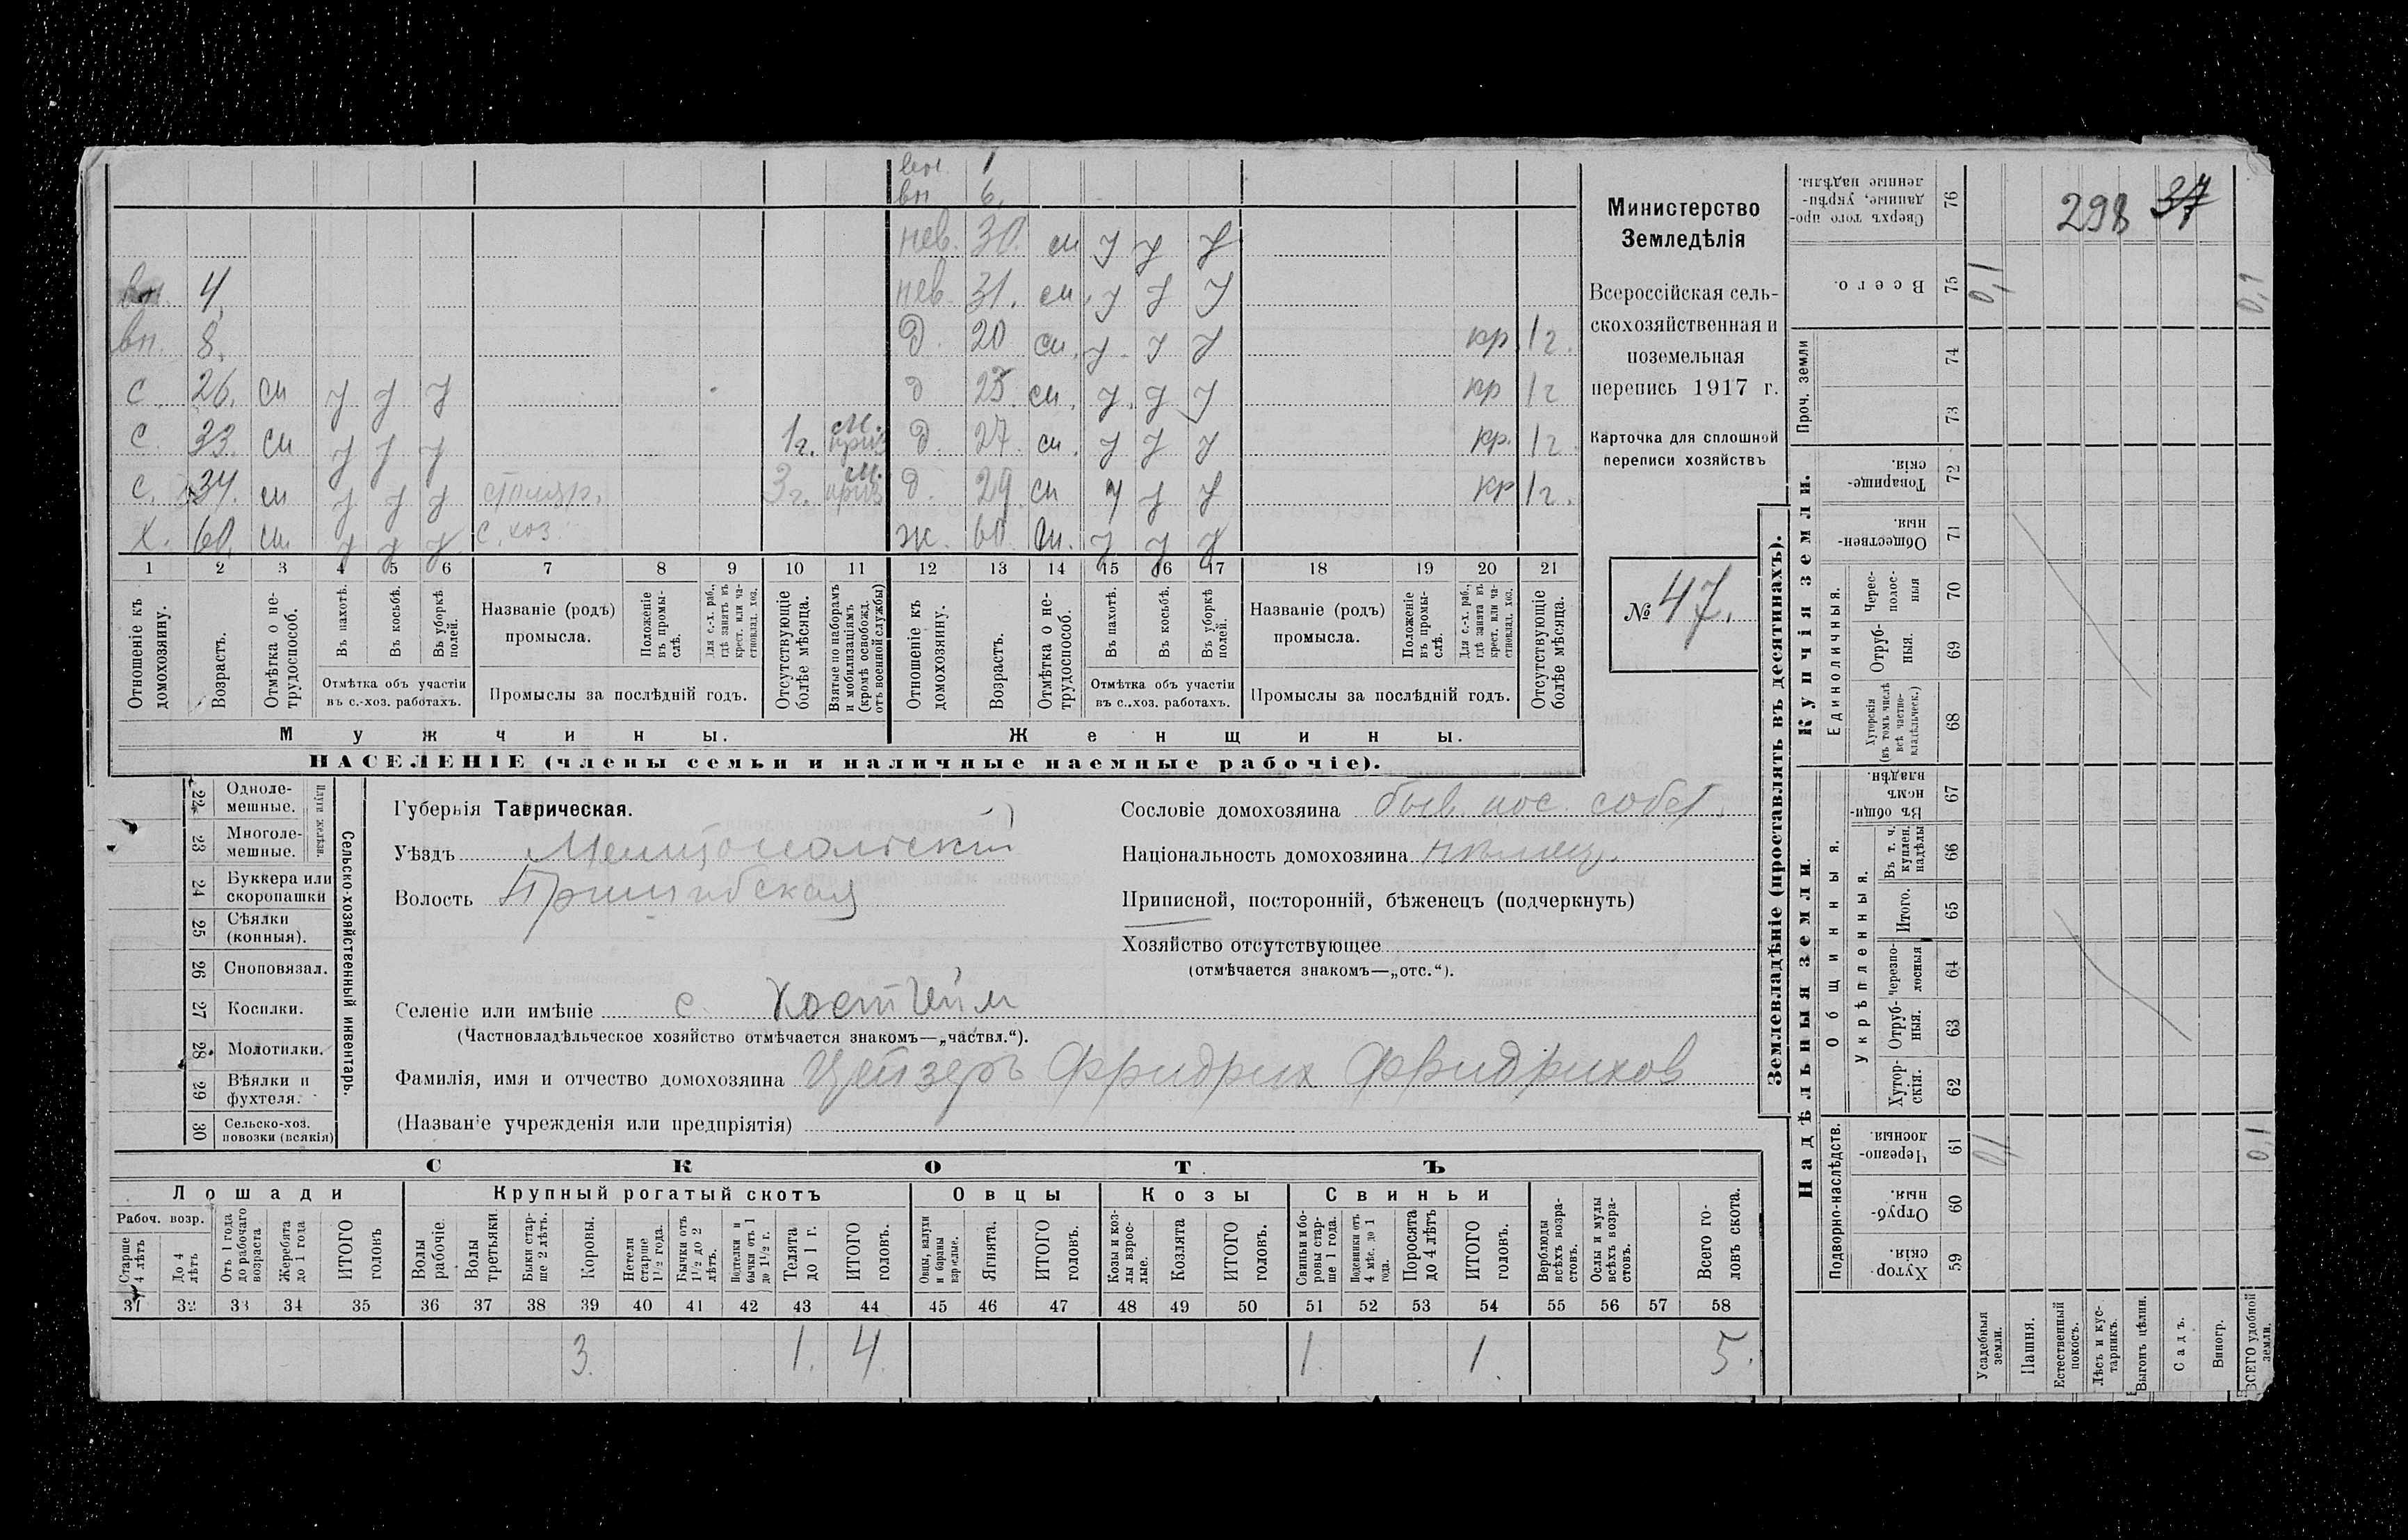 вн 1
вн 6.
нев. 30. см у у у
вн. 4. нев. 31. см. у у у
вн. 8. д. 20 см. у у у кр. 1 г.
с. 26. см у у у д 23. см. у у у кр 1 г
с. 33. см у у у 1 г. м. приз д. 27. см. у у у кр. 1 г.
с. 34. см у у у столяр. 3 г. м. приз д. 29 см у у у кр 1 г.
х. 60. см. у у у с. хоз. ж. 60 см. у у у
1 2 3 4 5 6 7 8 9 10 11 12 13 14 15 16 17 18 19 20 21
Отношеніе къ домохозяину.
Возрастъ.
Отмѣтка о нетрудоспособ.
Въ пахотѣ.
Въ косьбѣ.
Въ уборкѣ полей.
Отмѣтка объ участіи
въ с.-хоз. работахъ.
Названіе (родъ)
промысла.
Положеніе въ промыслѣ.
Для с.-х. раб., гдѣ занятъ въ крест. или частновлад. хоз.
Промыслы за послѣдній годъ.
Отсутствующіе болѣе мѣсяца.
Взятые по наборамъ и мобилизаціямъ (кромѣ освобожд. отъ военной службы)
Отношеніе къ домохозяину.
Возрастъ.
Отмѣтка о нетрудоспособ.
Въ пахотѣ.
Въ косьбѣ.
Въ уборкѣ полей.
Отмѣтка объ участіи
въ с.-хоз. работахъ.
Названіе (родъ)
промысла.
Положеніе въ промыслѣ.
Для с.-х. раб., гдѣ занята въ крест. или частновлад. хоз.
Промыслы за послѣдній годъ.
Отсутствующіе болѣе мѣсяца.
Мужчины. Женщины.
НАСЕЛЕНІЕ (члены семьи и наличные наемные рабочіе).
Министерство
Земледѣлія
Всероссійская сель-
скохозяйственная и
поземельная
перепись 1917 г.
Карточка для сплошной
переписи хозяйствъ
№ 47.
22 Однолемешные.
23 Многолемешные.
Плуги желѣзн.
24 Буккера или скоропашки
25 Сѣялки (конныя).
26 Сноповязал.
27 Косилки.
28 Молотилки.
29 Вѣялки и фухтеля.
30 Сельско-хоз. повозки (всякія)
Сельско-хозяйственный инвентарь.
Губернія Таврическая.
Уѣздъ Мелитопольскій
Волость Пришибская
Селеніе или имѣніе с. Костгейм
(Частновладѣльческое хозяйство отмѣчается знакомъ—„частвл.“).
Фамилія, имя и отчество домохозяина Цейзеръ Фридрих Фридрихов
(Названіе учрежденія или предпріятія)
Сословіе домохозяина быв. пос. собст.
Національность домохозяина нѣмец.
Приписной, посторонній, бѣженецъ (подчеркнуть)
Хозяйство отсутствующее
(отмѣчается знакомъ—„отс.“).
СКОТЪ
Лошади Крупный рогатый скотъ Овцы Козы Свиньи
Рабоч. возр.
Старше 4 лѣтъ
До 4 лѣтъ
Отъ 1 года до рабочаго возраста
Жеребята до 1 года
ИТОГО головъ
Волы рабочіе.
Волы третьяки.
Быки старше 2 лѣтъ.
Коровы.
Нетели старше 1 1/2 года.
Бычки отъ 1 1/2 до 2 лѣтъ.
Подтелки и бычки отъ 1 до 1 1/2 г.
Телята до 1 г.
ИТОГО головъ.
Овцы, валухи и бараны взрослые.
Ягнята.
ИТОГО головъ.
Козы и козлы взрослые.
Козлята
ИТОГО головъ.
Свиньи и боровы старше 1 года.
Подсвинки отъ 4 мѣс. до 1 года.
Поросята до 4 лѣтъ
ИТОГО головъ.
Верблюды всѣхъ возрастовъ.
Ослы и мулы всѣхъ возрастовъ.
Всего головъ скота.
31 32 33 34 35 36 37 38 39 40 41 42 43 44 45 46 47 48 49 50 51 52 53 54 55 56 57 58
3. 1. 4. 1. 1. 5.
Землевладѣніе (проставлять въ десятинахъ).
Надѣльныя земли. Купчія земли. Проч. земли
Подворно-наслѣдств. Общинныя. Укрѣпленныя. Единоличныя.
Хуторскія. 59
Отрубныя. 60
Черезполосныя. 61 0,1 0,1
Хуторскія. 62
Отрубныя. 63
Черезполосныя 64
Итого. 65
Въ т. ч. куплен. надѣлы 66
Въ общинномъ владѣн. 67
Хуторскія (въ томъ числѣ всѣ частновладѣльческ.) 68
Отрубныя. 69
Чересполосныя 70
Общественныя. 71
Товарищескія. 72
73
74
Всего. 75 0,1 0,1
Сверхъ того проданные, укрѣпленные надѣлы. 76
298 37
Усадебныя земли.
Пашня.
Естественный покосъ.
Лѣсъ и кустарникъ.
Выгонъ цѣлин.
Садъ.
Виногр.
ВСЕГО удобной земли.